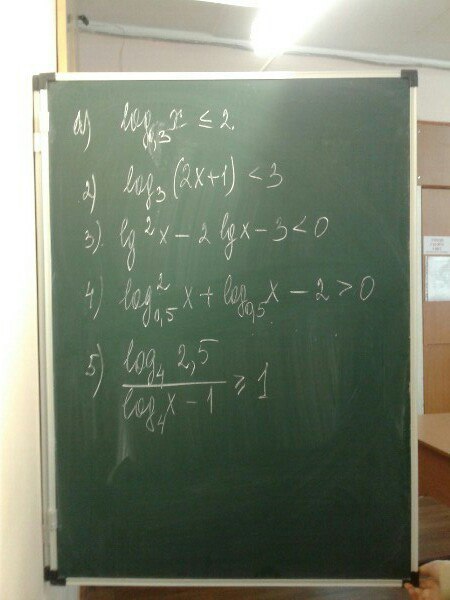 1) log₀,₃ x ≤ 2
2) log₃ (2x+1) < 3
3) lg²x − 2 lgx − 3 < 0
4) log²₀,₅ x + log₀,₅ x − 2 > 0
5) log₄ 2,5 / log₄ x − 1 ≥ 1